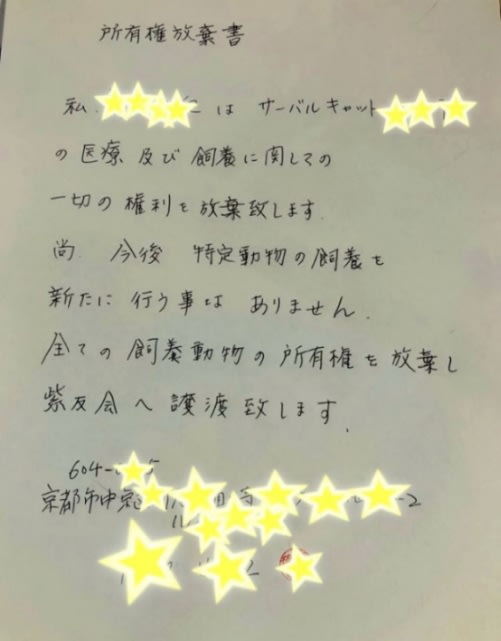 所有権放棄書
私 は サーバルキャット
の医療及び飼養に関しての
一切の権利を放棄致します.
尚. 今後 特定動物の飼養を
新たに行う事はありません.
全ての飼養動物の所有権を放棄し
紫友会へ譲渡致します.
604-
京都市中京